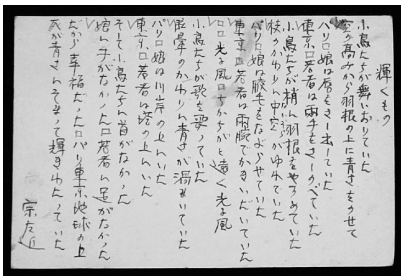 輝くもの
小鳥たちが舞いおりていた
空の高みから羽根の上に青さをのせて
パリの娘は唇をさし出していた
東京の若者は両手をさしのべていた
小鳥たちが梢に羽根をやすめていた
枝のかわりに中空がゆれていた
パリの娘は睫毛をなよらせていた
東京の若者は両腕でかきいだいていた
光る風 遠く光る風
小鳥たちが歌を歌っていた
眩暈のかわりに青さが溺れていた
パリの娘は川岸の上にいた
東京の若者は塔の上にいた
そして小鳥たちに首がなかった
娘に手がなかった 若者に足がなかった
だから幸福だった パリ東京地球の上
死が青さにそまって輝きわたっていた
宗左近